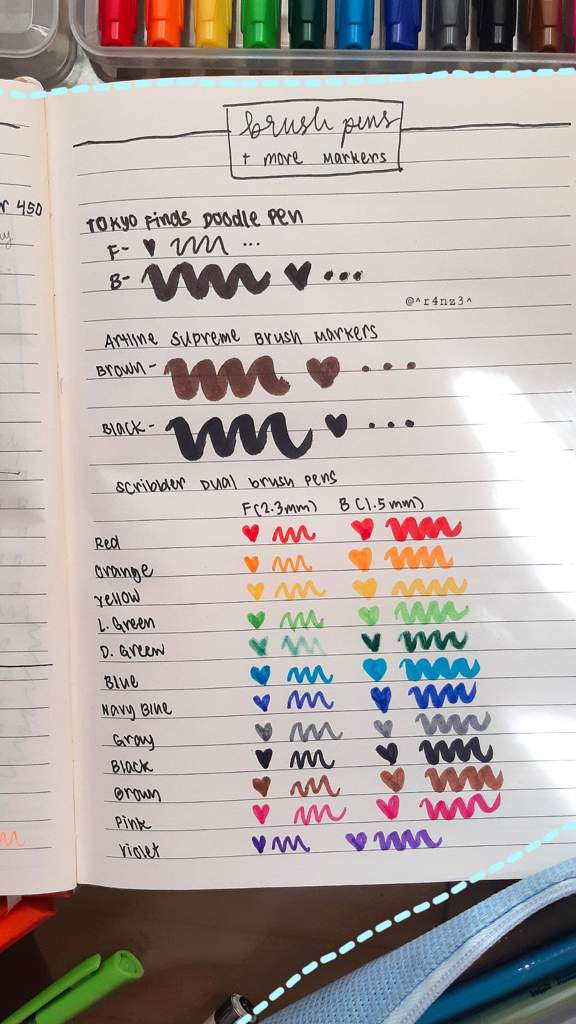 brush pens
+ more markers
r 450
Tokyo Finds Doodle Pen
F-
B-
@^r4nz3^
Artline Supreme Brush Markers
Brown -
Black -
Scribbler Dual brush pens
F(2.3mm) B(1.5mm)
Red
Orange
Yellow
L. Green
D. Green
Blue
Navy Blue
Gray
Black
Brown
Pink
Violet